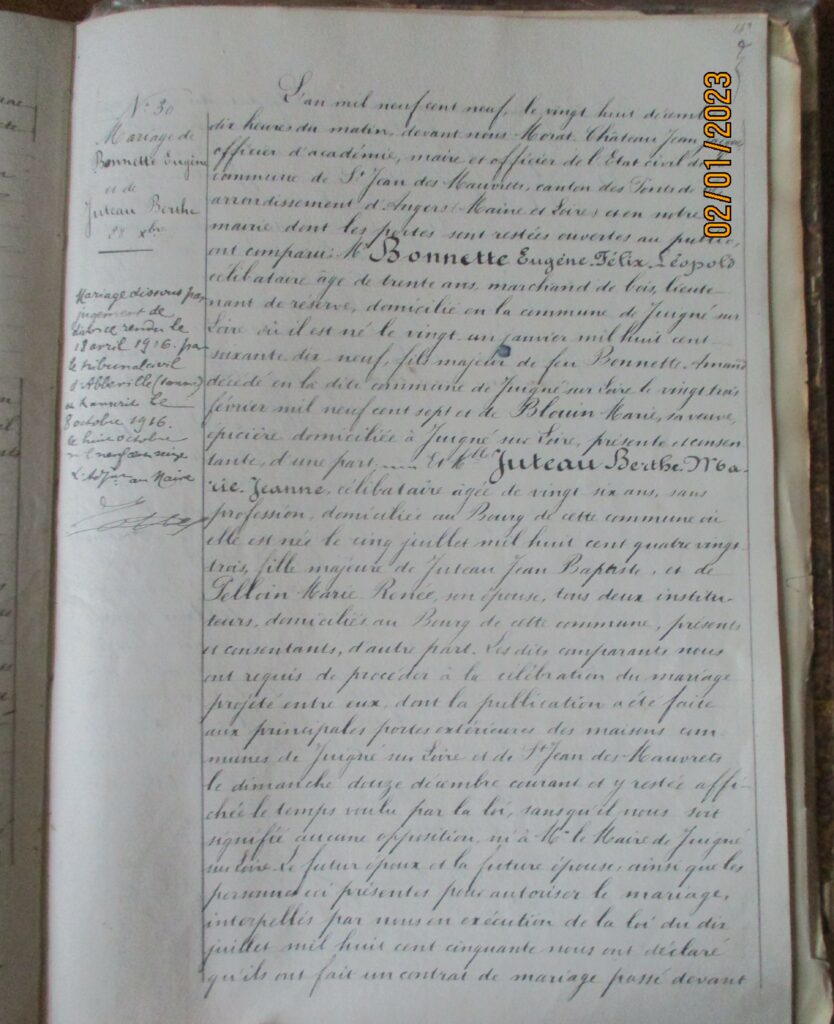 N° 30
Mariage de
Bonnette Eugène
et de
Juteau Berthe
28 Xbre
Mariage dissous par
jugement de
divorce rendu le
18 avril 1916. par
le tribunal civil
d'Abbeville (Somme)
le
8 octobre 1916.
le huit octobre
mil neuf cent seize
au Maire
L'an mil neuf cent neuf, le vingt huit décembre
dix heures du matin, devant nous Château Jean
officier d'académie, maire et officier de l'Etat civil de la
commune de St Jean des Mauvrets, canton des Ponts de Cé
arrondissement d'Angers (Maine et Loire) et en notre
mairie dont les portes sont restées ouvertes au public,
ont comparu: Mr Bonnette Eugène-Félix-Léopold
célibataire âgé de trente ans, marchand de bois, lieute-
nant de réserve, domicilié en la commune de Juigné sur
Loire où il est né le vingt un janvier mil huit cent
soixante dix neuf, fils majeur de feu Bonnette Amand
décédé en la dite commune de Juigné sur Loire le vingt trois
février mil neuf cent sept et de Blouin Marie, sa veuve,
épicière domiciliée à Juigné sur Loire, présente et consen-
tante, d'une part. Et Melle Juteau Berthe-Ma-
rie-Jeanne, célibataire âgée de vingt six ans, sans
profession, domiciliée au Bourg de cette commune où
elle est née le cinq juillet mil huit cent quatre vingt
trois, fille majeure de Juteau Jean Baptiste, et de
Pelloin Marie Renée, son épouse, tous deux institu-
teurs, domiciliés au Bourg de cette commune, présents
et consentants, d'autre part. Les dits comparants nous
ont requis de procéder à la célébration du mariage
projeté entre eux, dont la publication a été faite
aux principales portes extérieures des maisons com-
munes de Juigné sur Loire et de St Jean des Mauvrets
le dimanche douze décembre courant et y restée affi-
chée le temps voulu par la loi, sans qu'il nous soit
signifié aucune opposition, ni à Mr le Maire de Juigné
sur Loire. Le futur époux et la future épouse, ainsi que les
personnes ici présentes pour autoriser le mariage,
interpellés par nous en exécution de la loi du dix
juillet mil huit cent cinquante nous ont déclaré
qu'ils ont fait un contrat de mariage passé devant
02/01/2023